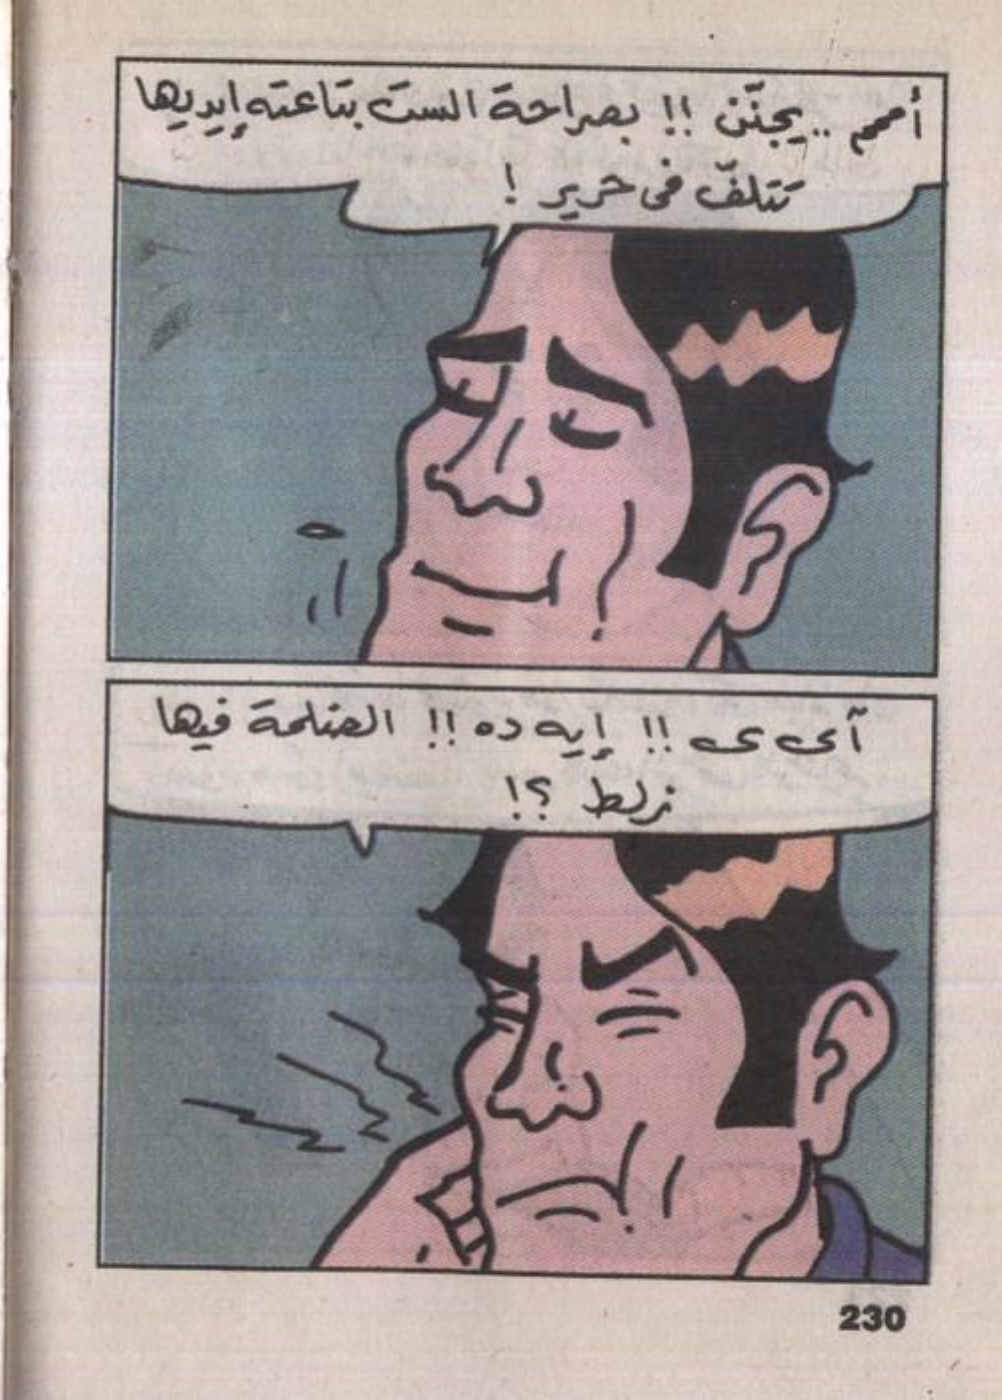 أممم .. يجنّن !! بصراحة الست بتاعته إيديها
تتلفّ فى حرير !
آى ى ى !! إيه ده !! الصلصة فيها
زلط ؟!
230